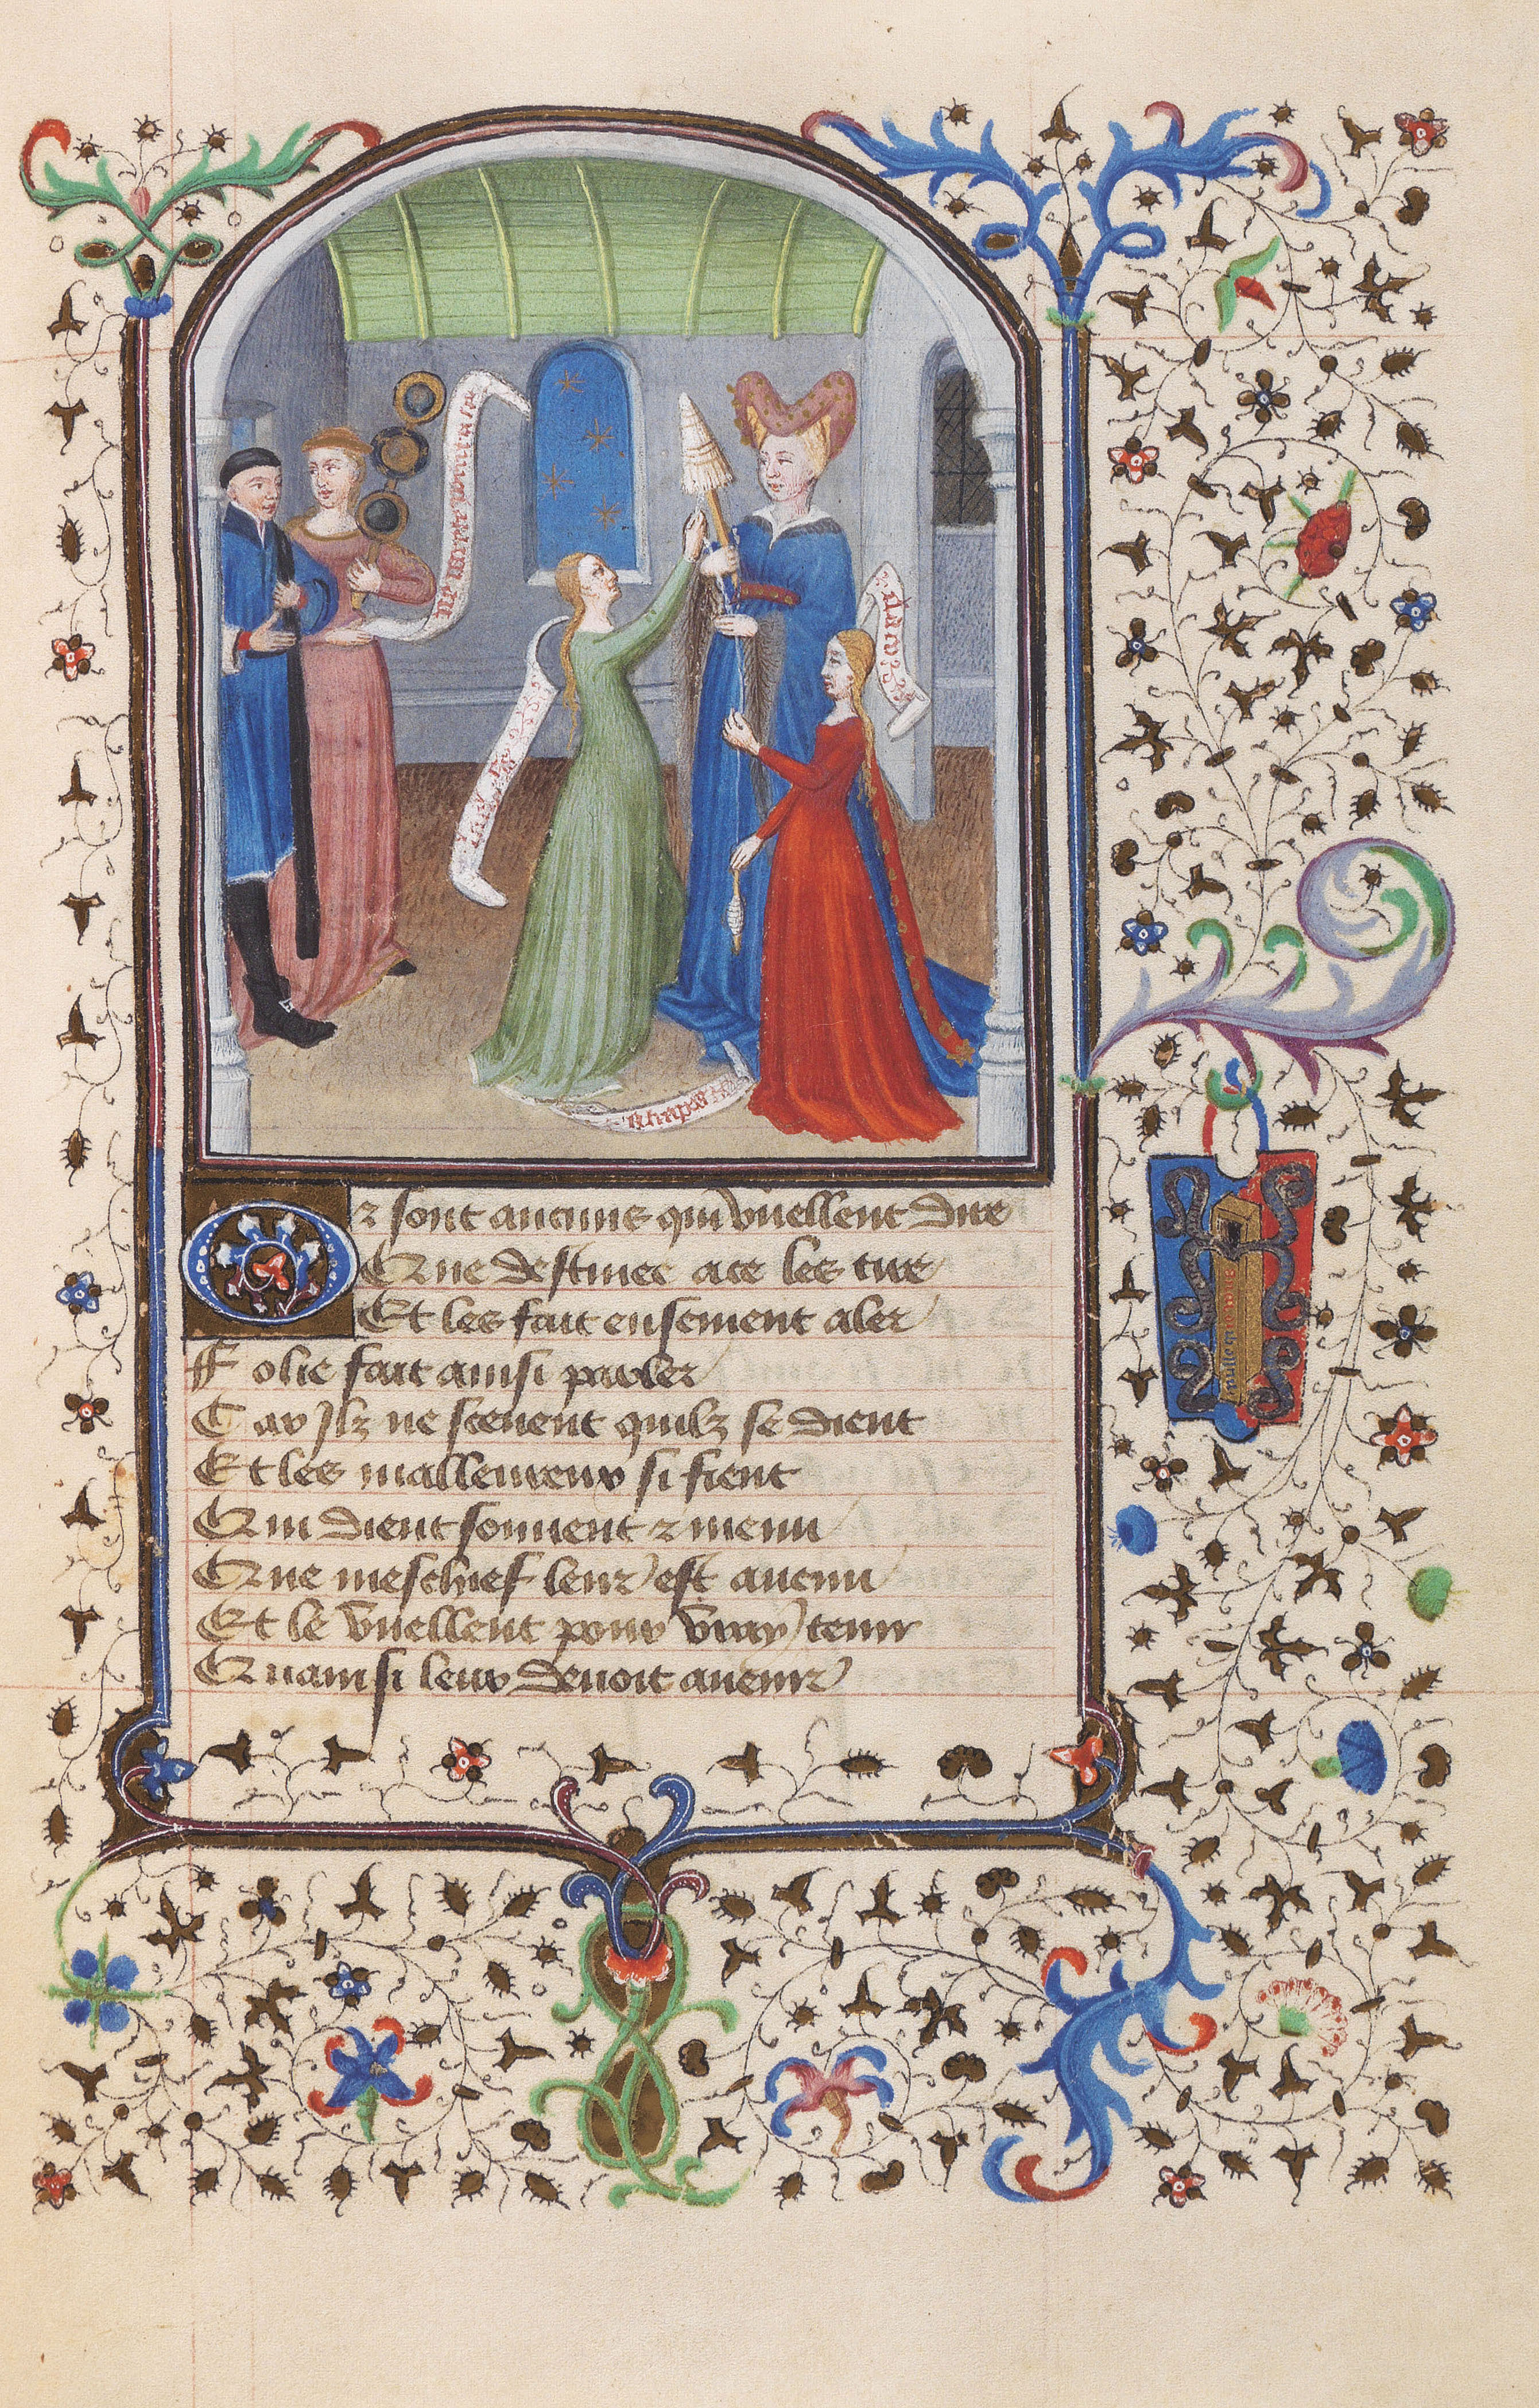 lachesis
cloto
attropos
Or sont aucuns qui vuellent dire
Que destinee ace les tire
Et les fait ensement aler
Folie fait ainsi parler
Car Jlz ne sceuent quilz se dient
Et les malleureux si fient
Qui dient souuent ⁊ menu
Que meschief leur est auenu
Et le vuellent pour vray tenir
Quainsi leur deuoit auenir